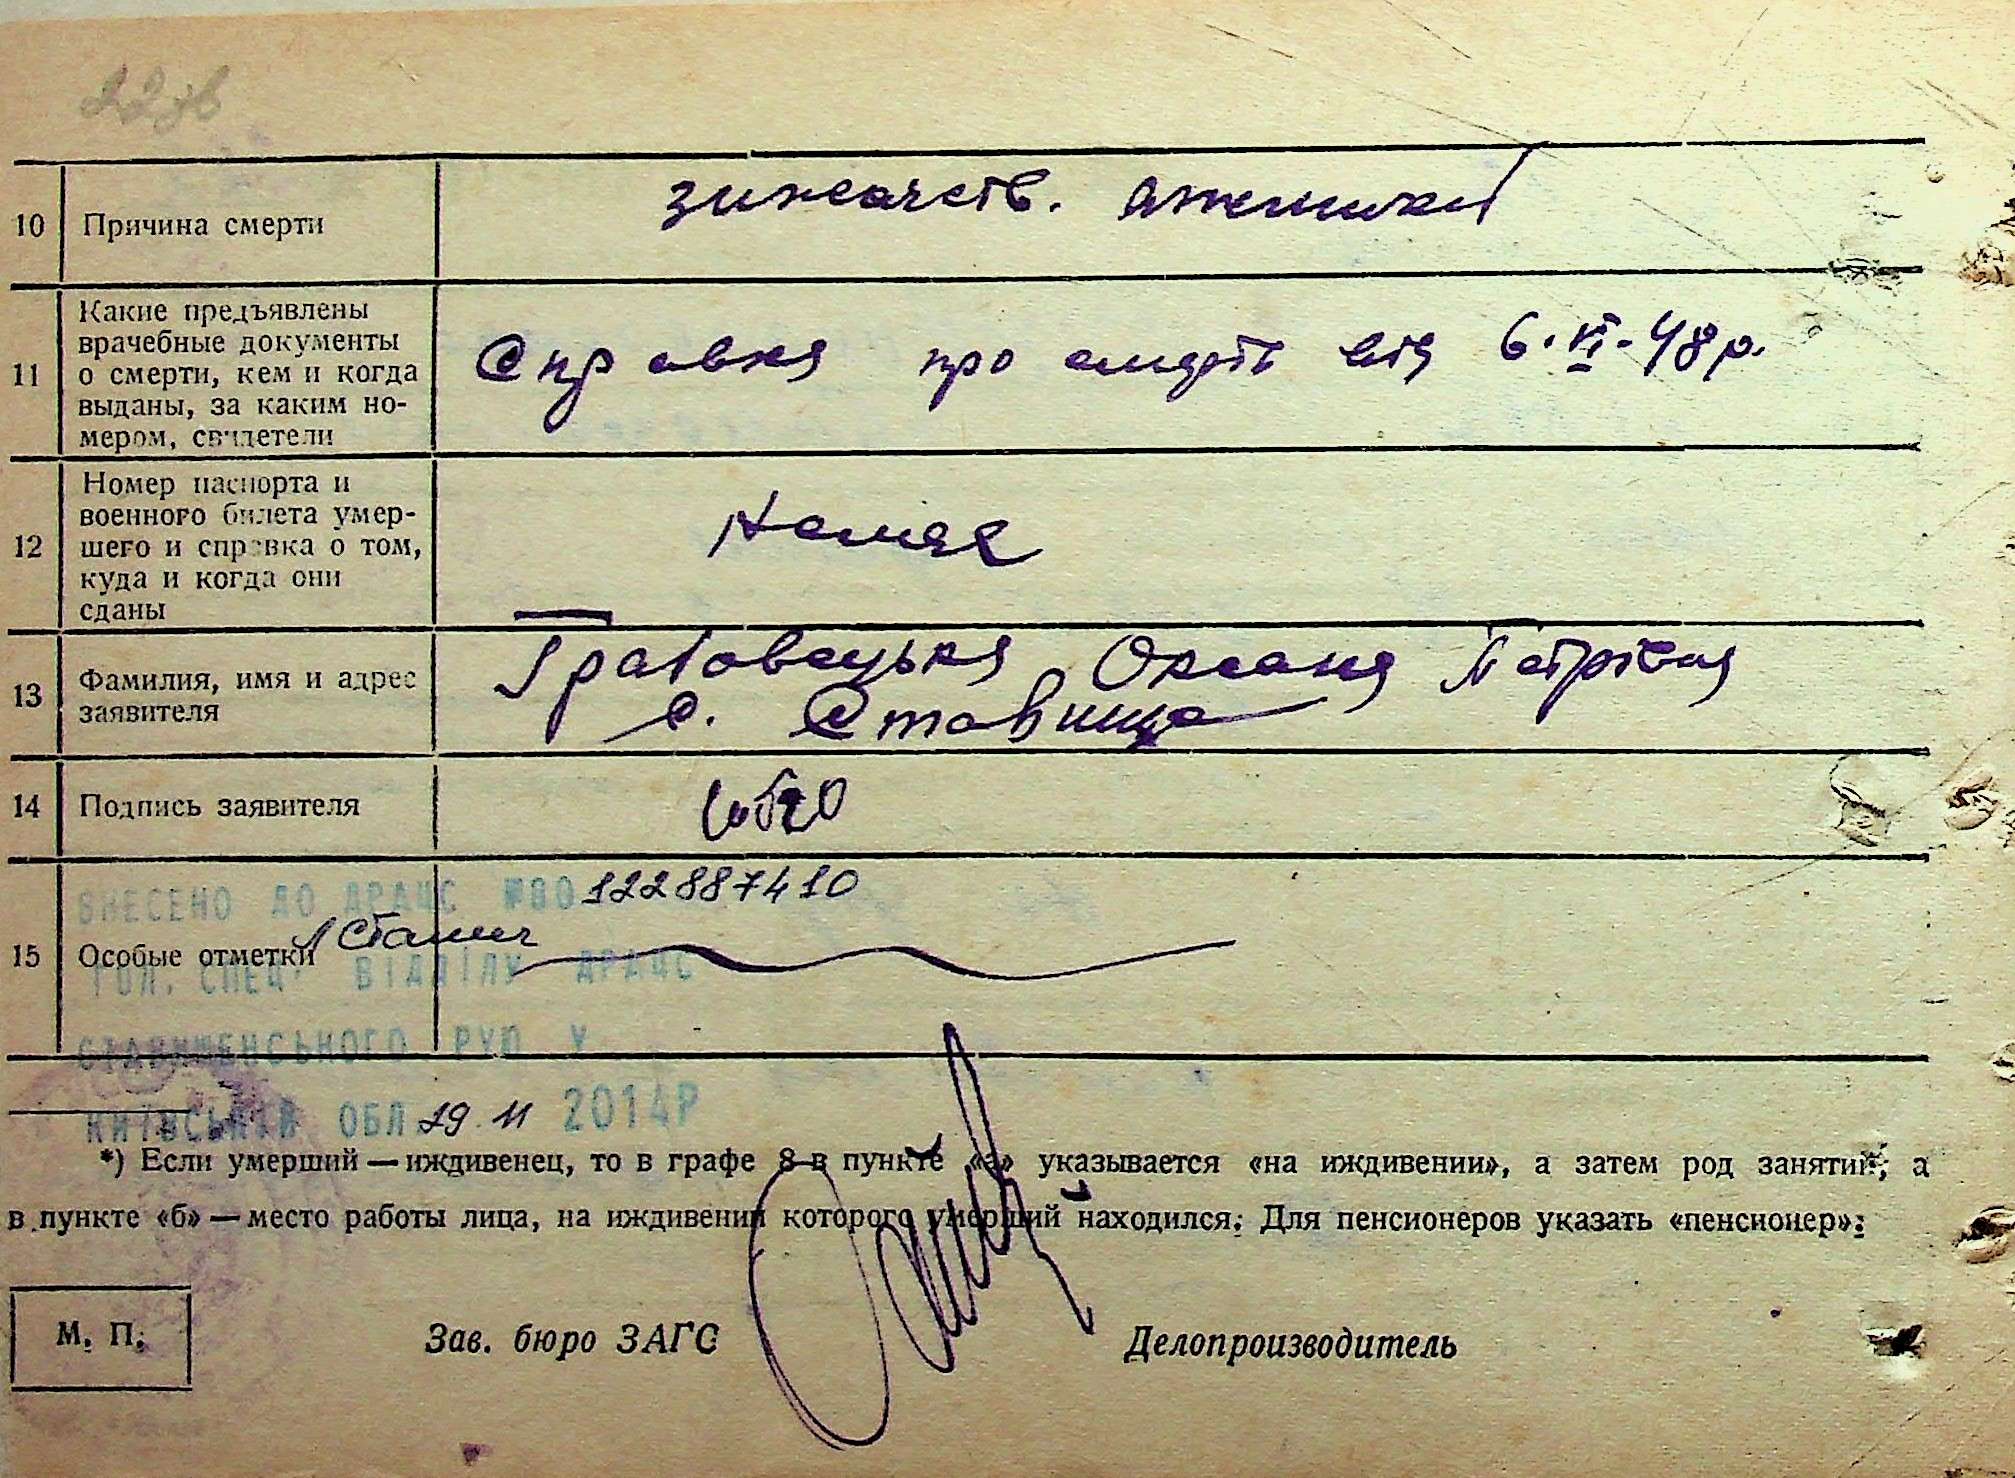 10 Причина смерти
11 Какие предъявлены
врачебные документы
о смерти, кем и когда
выданы, за каким но-
мером, свидетели
Справка про смерть від 6.VI.48 р.
12 Номер паспорта и
военного билета умер-
шего и справка о том,
куда и когда они
сданы
Немає
13 Фамилия, имя и адрес
заявителя
Грабовецька Оксана Петрівна
с. Ставище
14 Подпись заявителя
15 Особые отметки
ВНЕСЕНО ДО ДРАЦС №00122887410
ГОЛ. СПЕЦ. ВІДДІЛУ ДРАЦС
СТАВИЩЕНСЬКОГО РУЮ У
КИЇВСЬКІЙ ОБЛ. 29.11 2014Р
*) Если умерший — иждивенец, то в графе 8 в пункте «а» указывается «на иждивении», а затем род занятий, а
в пункте «б» — место работы лица, на иждивении которого умерший находился. Для пенсионеров указать «пенсионер».
М. П.
Зав. бюро ЗАГС
Делопроизводитель